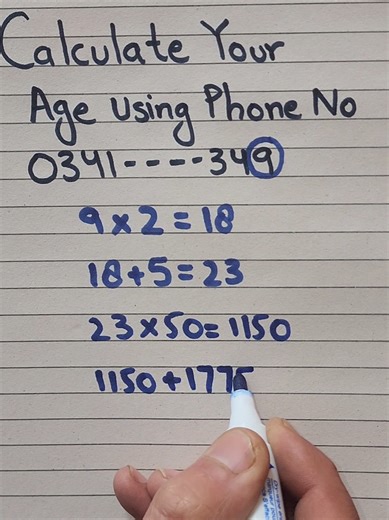 Calculate Your
Age Using Phone No
0341----349
9x2=18
18+5=23
23x50=1150
1150+1775